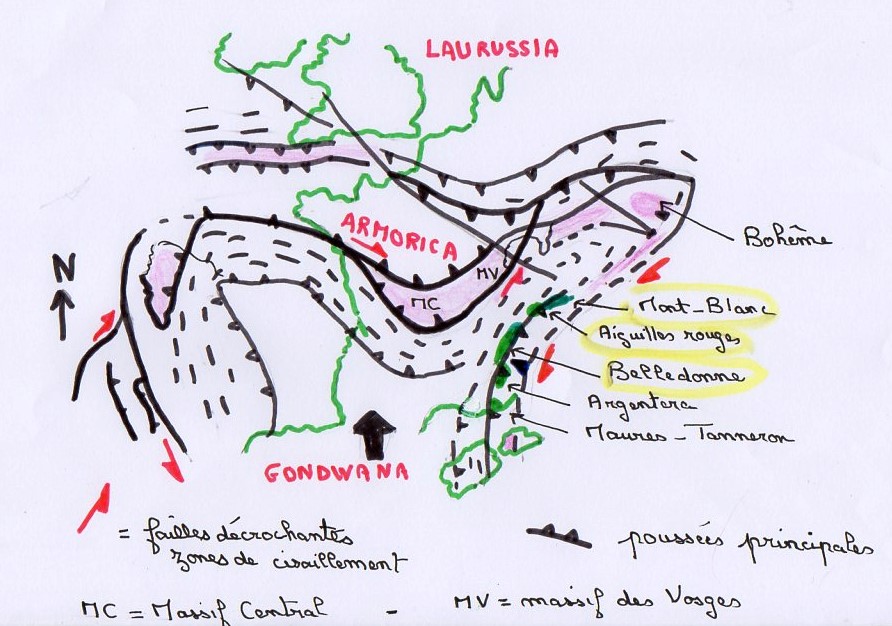 LAURUSSIA
ARMORICA
Bohême
N
MV
MC
Mont-Blanc
Aiguilles rouges
Belledonne
Argentera
Maures-Tanneron
GONDWANA
= failles décrochantes
zones de cisaillement
poussées principales
MC = Massif Central - MV = massif des Vosges